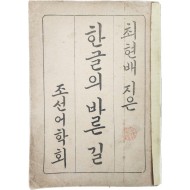 최현배 지은
한글의 바른 길
조선어학회